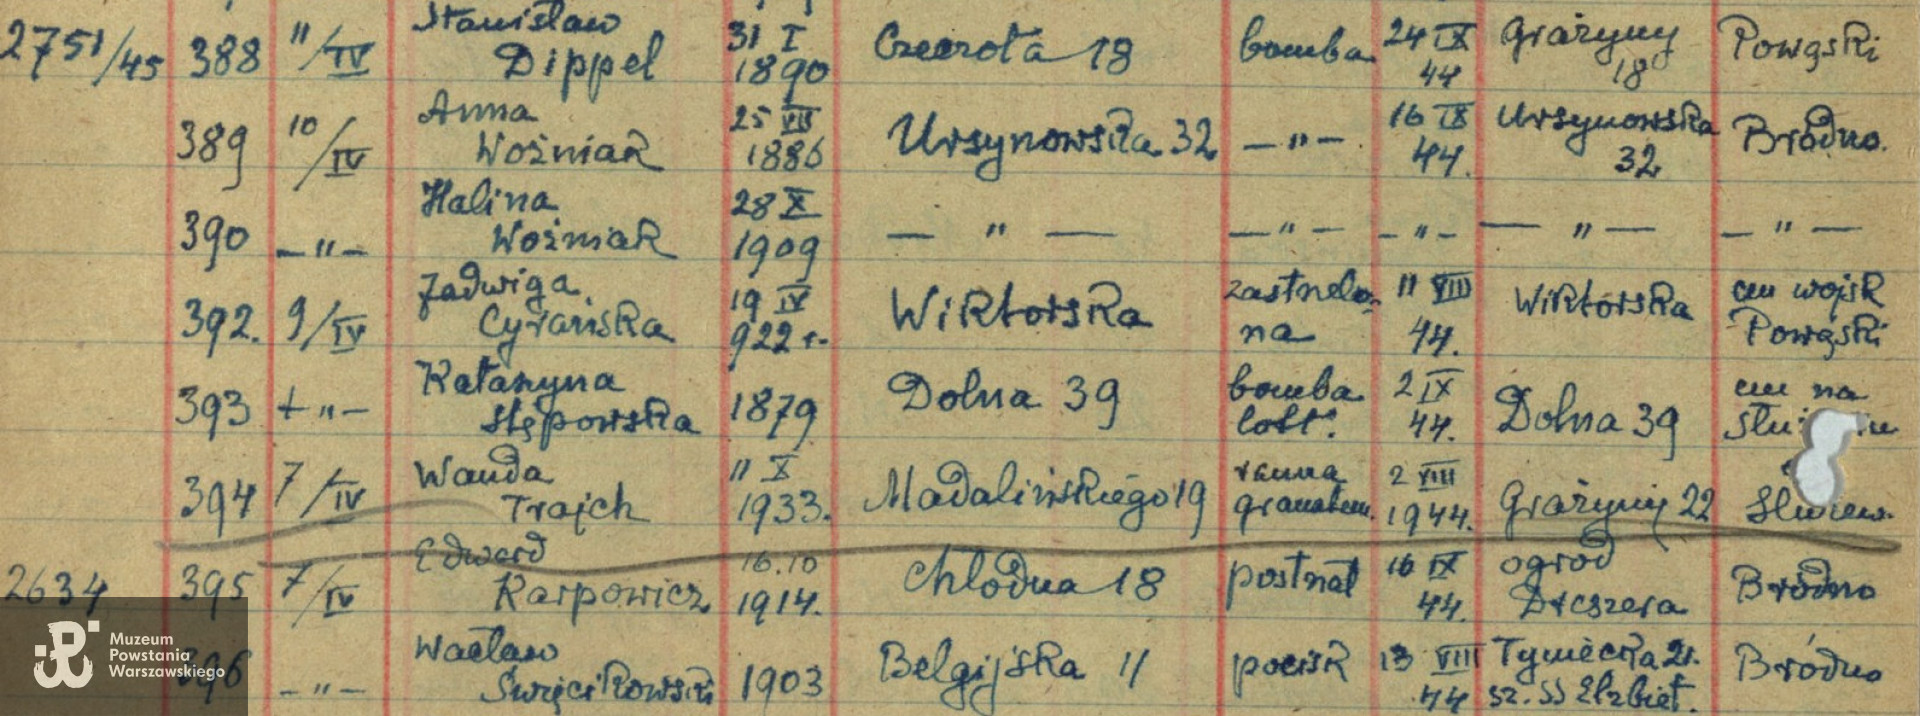 2751/45 388 "/IV Stanisław Dippel 31 I 1890 Czeczota 18 bomba 24 IX 44 Grażyny 18 Powąski
389 10/IV Anna Woźniak 25 VII 1886 Ursynowska 32 — " — 16 IX 44. Ursynowska 32 Bródno.
390 — " — Halina Woźniak 28 X 1909 — " — — " — — " — — " — — " —
392. 9/IV Jadwiga Cyrańska 19 IV 922 r. Wiktorska zastrzelona 11 VIII 44. Wiktorska cm wojsk Powąski
393 + " — Katarzyna Stępowska 1879 Dolna 39 bomba lott. 2 IX 44. Dolna 39 cm na
394 7/IV Wanda Trajch 11 X 1933. Madalińskiego 19 ranna granatem. 2 VIII 1944. Grażyny 22
2634 395 7/IV Edward Karpowicz 16.10 1914. Chłodna 18 postrzał 16 IX 44. ogród Dreszera Bródno
396 — " — Wacław Święcikowski 1903 Belgijska 11 pocisk 13 VIII 44 Tyniecka 21. sz. SS Elżbiet. Bródno
Muzeum
Powstania
Warszawskiego